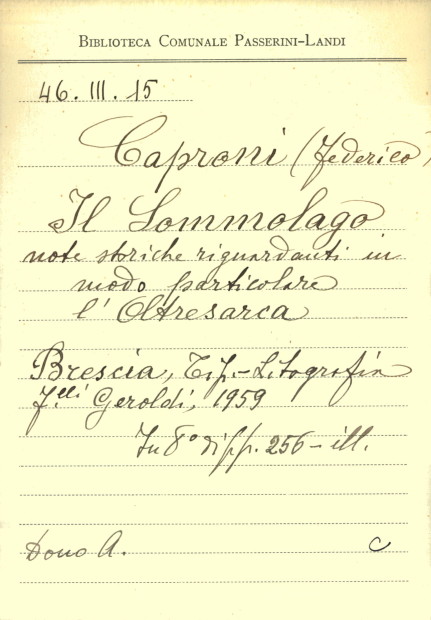 BIBLIOTECA COMUNALE PASSERINI-LANDI
46. III. 15
Caproni (Federico)
Il Sommolago
note storiche riguardanti in
modo particolare
l'Oltresarca
Brescia, Tip.-Litografia
F.lli Geroldi, 1959
In 8° di pp. 256 - ill.
Dono A. C